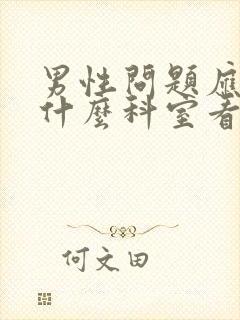 男性問題應
什麼科室看
何文田